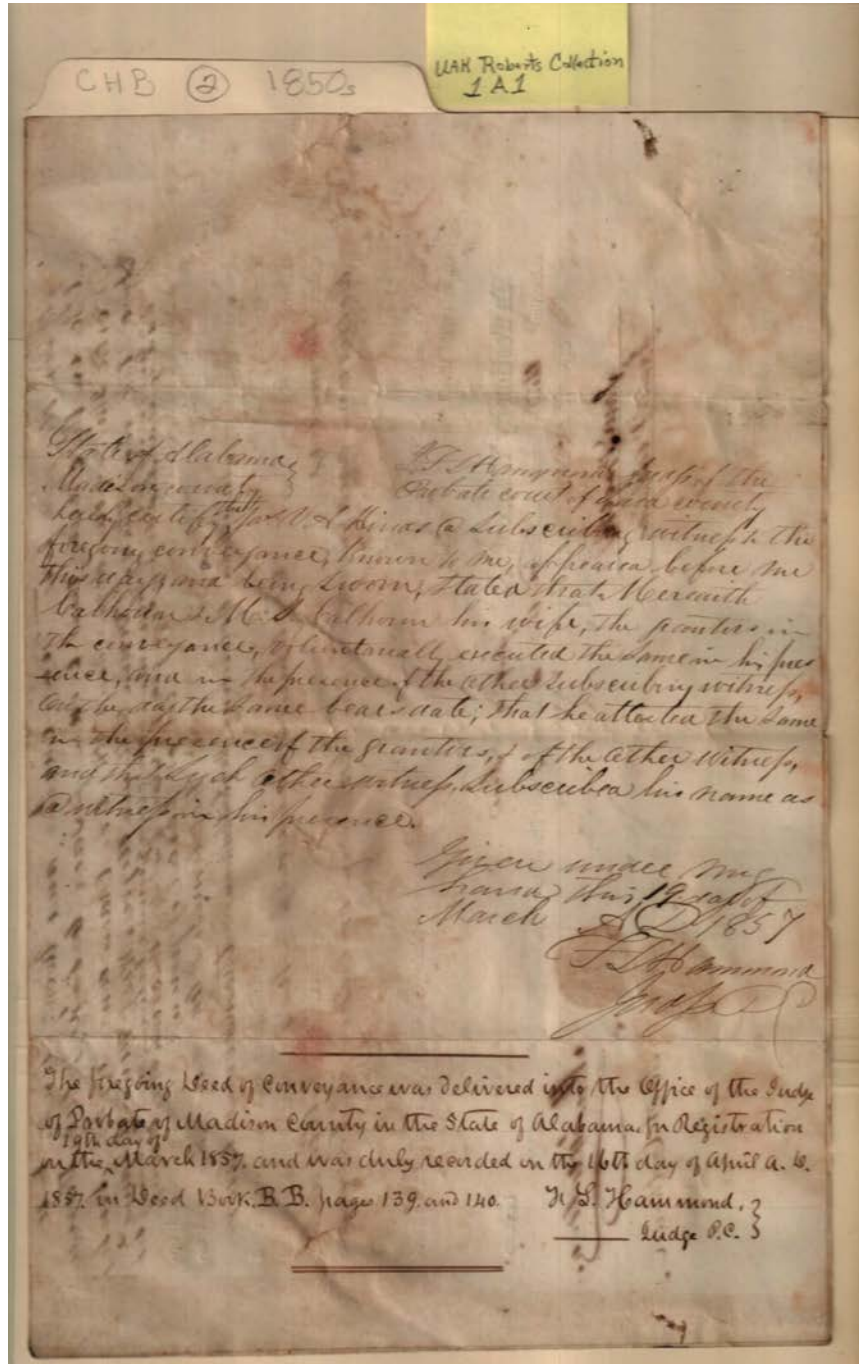 CHB ② 1850s
UAH Roberts Collection
1A1
State of Alabama }
Madison county }
I F L Hammond Judge of the
Probate court of said county
hereby certify that Jos. Hinds a Subscribing witness to the
foregoing conveyance, known to me, appeared before me
this day, and being Sworn, stated that Meredith
Calhoun & M. S. Calhoun his wife, the grantors in
the conveyance, voluntarily executed the same in his pres
ence, and in the presence of the other Subscribing witness,
on the day the Same bears date; that he attested the Same
in the presence of the grantors, & of the other witness,
and that Such other witness Subscribed his name as
a witness in his presence.
Given under my
hand this 19 day of
March A D 1857
F L Hammond
Judge P C
The foregoing Deed of Conveyance was delivered into the Office of the Judge
of Probate of Madison County in the State of Alabama for Registration
on the 19th day of March 1857. and was duly recorded on the 16th day of April A. D.
1857. in Deed Book. B.B. pages 139. and 140.
F. L. Hammond. }
Judge P.C. }